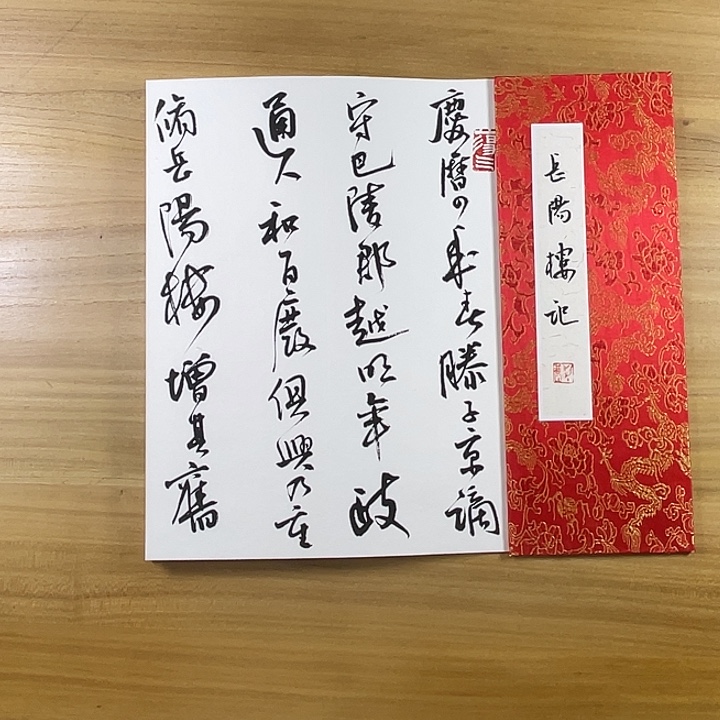 岳陽樓記
慶曆四年春滕子京謫
守巴陵郡越明年政
通人和百廢俱興乃重
脩岳陽樓增其舊